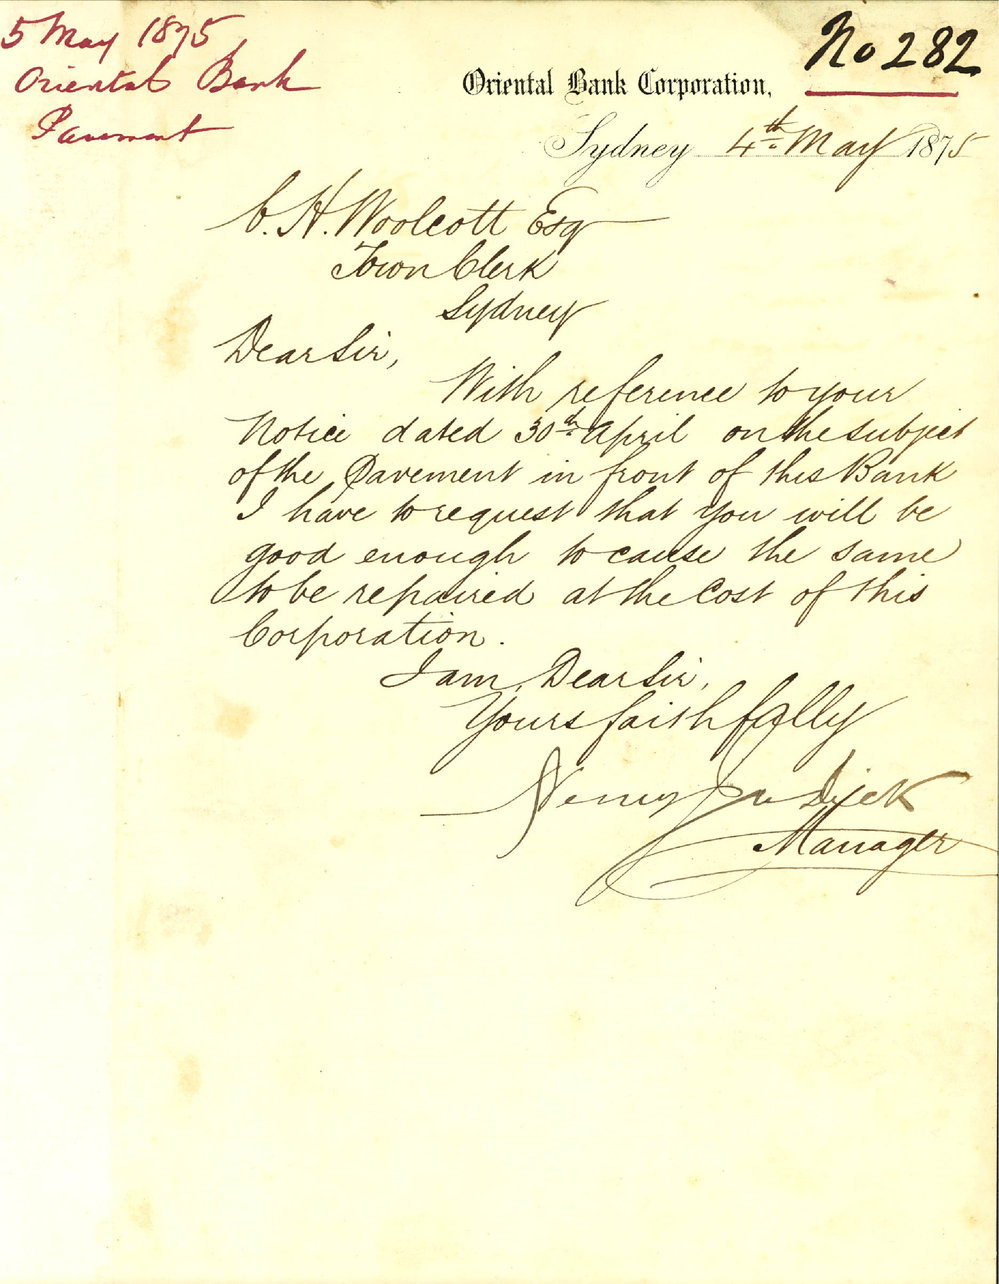 5 May 1875
Oriental Bank
Pavement
No 282
Oriental Bank Corporation,
Sydney 4th May 1875
C. H. Woolcott Esq
Town Clerk
Sydney
Dear Sir,
With reference to your
Notice dated 30th April on the subject
of the Pavement in front of this Bank
I have to request that you will be
good enough to cause the same
to be repaired at the Cost of this
Corporation.
I am, Dear Sir,
Yours faithfully
Henry Dick
Manager